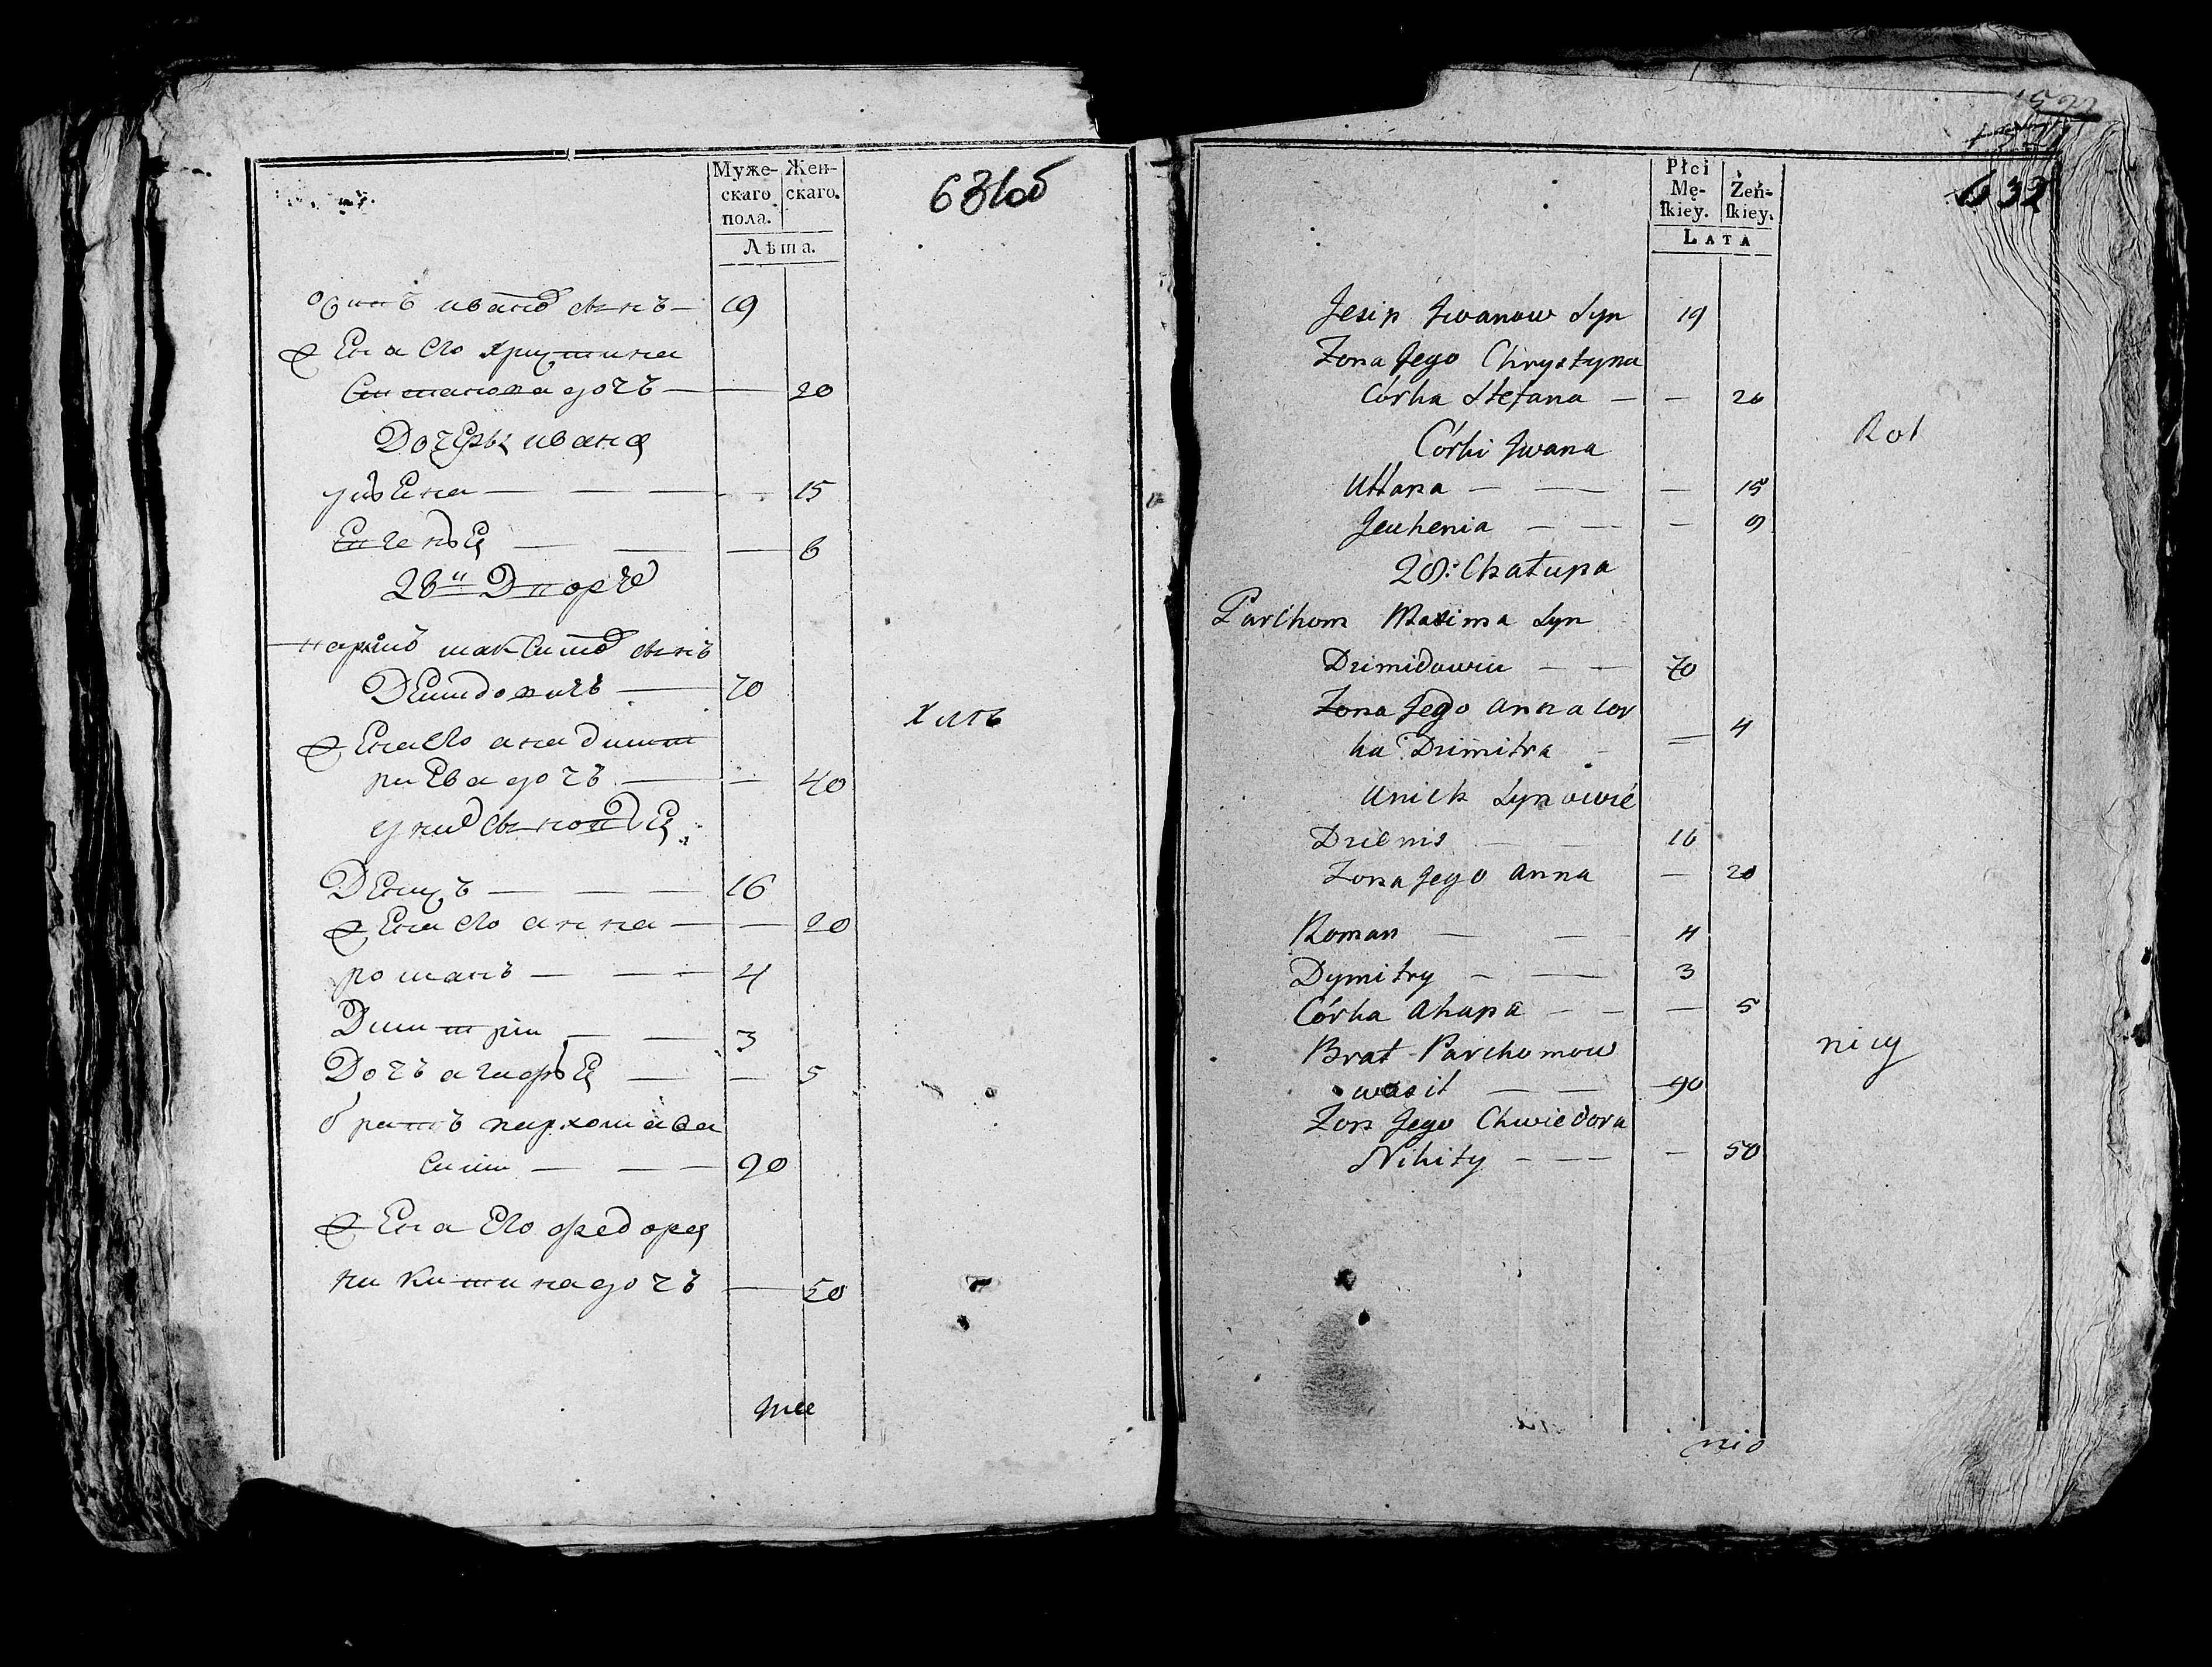 Муже-
скаго
пола.
Жен-
скаго.
Лѣта.
631об
осипъ иванов сынъ — 19
жена его христина
степанова дочь — — 20
Дочери ивана
ульена — — — 15
— — — 8
28й Дворъ
пархомъ максимов сынъ
Демидовичъ — 70
жена его ана дмит
риева дочь — — 40
у них сыновъя
Денисъ — — — 16
жена его анна — — 20
романъ — — — 4
Димитрій — — 3
Дочъ агапъя — — 5
братъ пархома ва
силій — — — 90
жена Его федора
никитина дочъ — 50
Płci
Mę-
skiey.
Żeń-
skiey.
LATA
632
Jesip Jwanow Syn 19
Zona Jego Chrystyna
Córka Stefana — — 20
Rot
Córki Jwana
Ullana — — — 15
Jeuhenia — — — 9
28: Chałupa
Parchom Maxima Syn
Dzimidowicz — — 70
Zona Jego Anna Cor
ka Dzimitra — — 4
Unich Synowie
Dzienis — — 16
Zona Jego Anna — 20
Roman — — 4
Dymitry — — 3
Córka Ahapa — — — 5
Brat Parchomow
nicy
wasil — — 90
Zon Jego Chwiedora
Nikity — — — 50